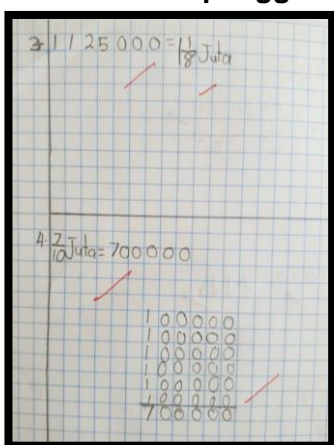 3. 1 125000 = 1 1/8 Juta
4. 7/10 Juta = 700000
100000
100000
100000
100000
100000
100000
700000